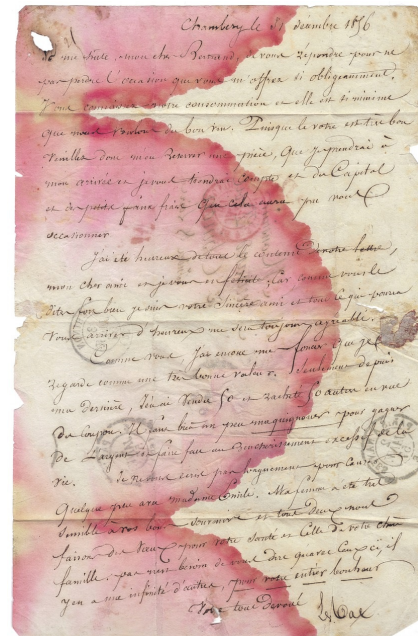 Chambéry le 31 decembre 1856
me hate, mon cher Bertrand, de vous repondre pour ne
pas perdre l'occasion que vous m'offrez si obligeamment.
Vous connaissez notre consommation et elle est si minime
que nous voulons du bon vin. Puisque le votre est très bon
veuillez donc m'en reserver une pièce, que je prendrai à
mon arrivée et je vous tiendrai compte et du Capital
et des petits faux frais que cela aura pu vous
occasionner.
J'ai été heureux de tout le contenu de votre lettre,
mon cher ainé et je vous en felicite, car comme vous le
dites fort bien je suis votre sincère ami et tout ce qui pourra
vous arriver d'heureux me sera toujours agreable.
Comme vous, J'ai encore mes que je
regarde comme une très bonne valeur. Seulement depuis
ma dernière, j'en ai vendu 50 et racheté 50 autres en vue
du coupon. Il faut bien un peu maquignoner pour gagner
De l'argent et faire face au rencherissement de la
vie. Je ne vous ecris pas longuement pour
Quelque peu madame Emile. Ma femme a été très
sensible à vos bons souvenirs et tous deux nous
faisons des voeux pour votre santé et celle de votre chère
famille. pas besoin de vous dire qu'avec ceux ci, il
y en a une infinité d'autres, pour votre entier bonheur
Votre tout devoué